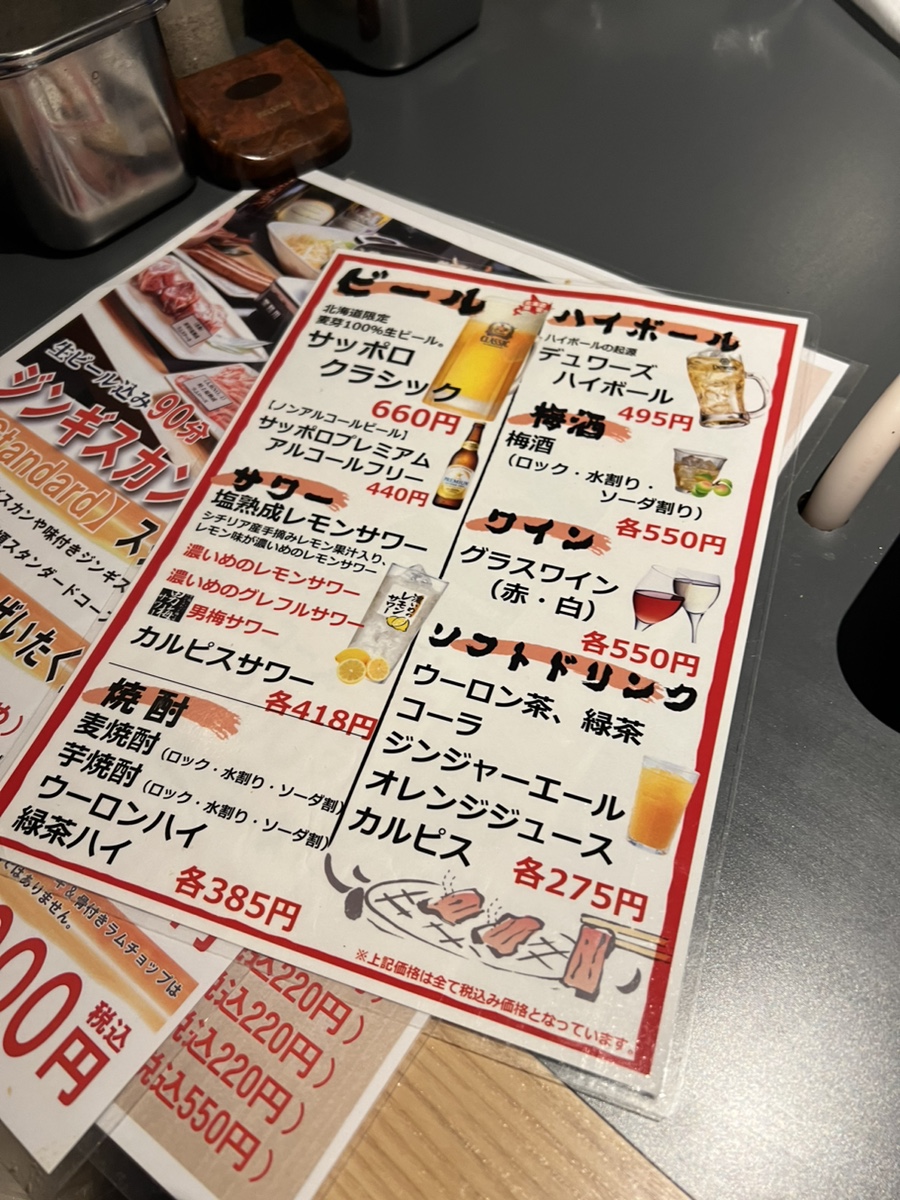 ビール
北海道限定
麦芽100%生ビール。
サッポロ
クラシック
660円
[ノンアルコールビール]
サッポロプレミアム
アルコールフリー
440円
サワー
塩熟成レモンサワー
シチリア産手摘みレモン果汁入り、
レモン味が濃いめのレモンサワー
濃いめのレモンサワー
濃いめのグレフルサワー
男梅サワー
カルピスサワー
各418円
焼酎
麦焼酎(ロック・水割り・ソーダ割)
芋焼酎(ロック・水割り・ソーダ割)
ウーロンハイ
緑茶ハイ
各385円
ハイボール
ハイボールの起源
デュワーズ
ハイボール
495円
梅酒
梅酒
(ロック・水割り・
ソーダ割り)
各550円
ワイン
グラスワイン
(赤・白)
各550円
ソフトドリンク
ウーロン茶、緑茶
コーラ
ジンジャーエール
オレンジジュース
カルピス
各275円
※上記価格は全て税込み価格となっています。
CLASSIC
生ビール込み90分
ジンギスカン
Standard】ス
スカンや味付きジンギス
スタンダードコー
ぜいたく
&骨付きラムチョップは
ではありません。
00円
税込
税込220円)
税込220円)
税込220円)
税込550円)